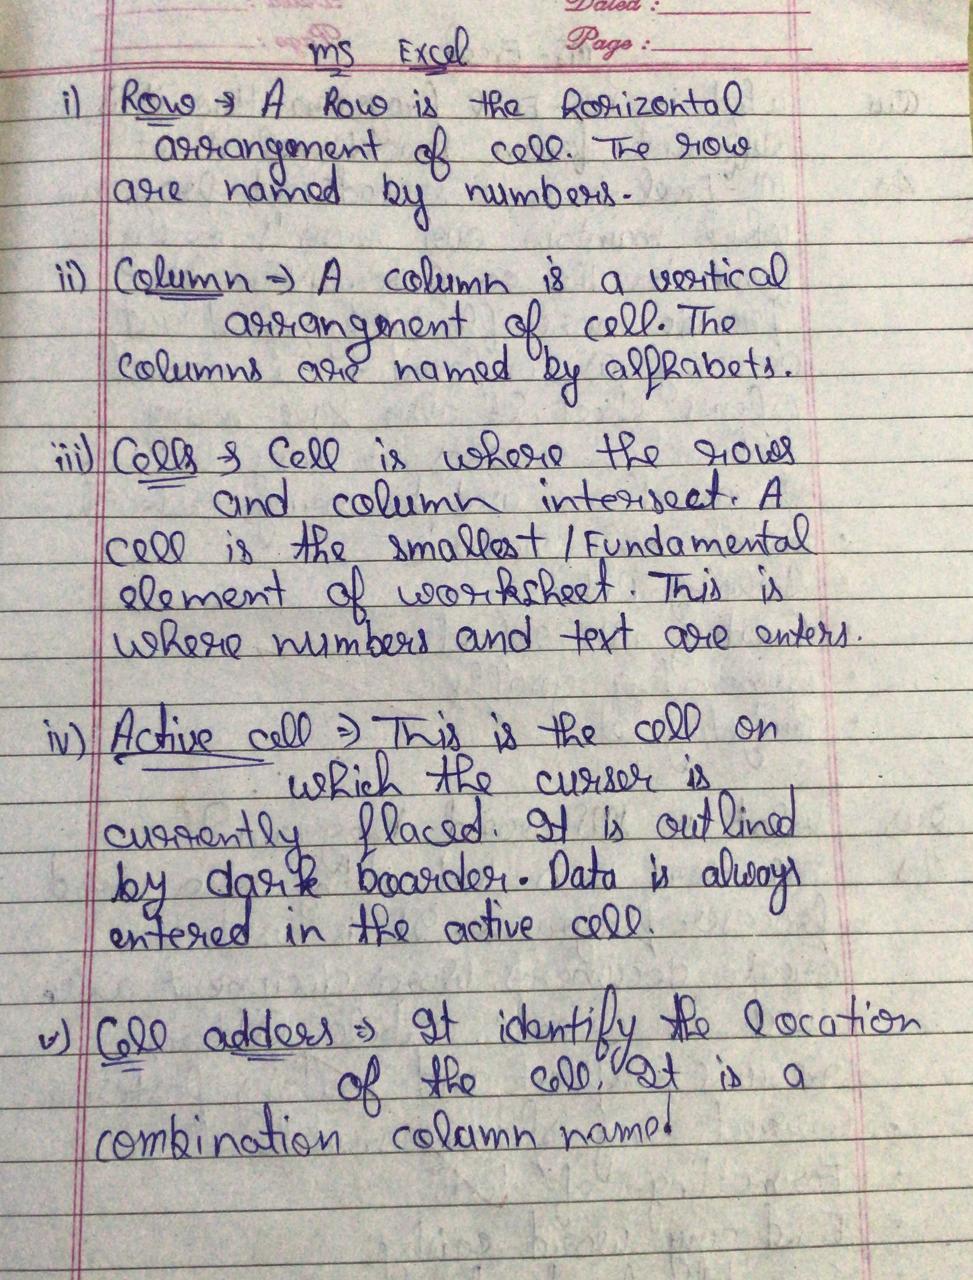 Dated :
Page :
MS Excel
i) Row → A Row is the horizontal
arrangement of cell. The row
are named by numbers.
ii) Column ⇒ A column is a vertical
arrangment of cell. The
columns are named by alphabets.
iii) Cells → Cell is where the rows
and column intersect. A
cell is the smallest / Fundamental
element of worksheet. This is
where numbers and text are enters.
iv) Active cell ⇒ This is the cell on
which the curser is
currently placed. It is outlined
by dark boarder. Data is always
entered in the active cell.
v) Cell adders ⇒ It identify the location
of the cell. It is a
combination column named